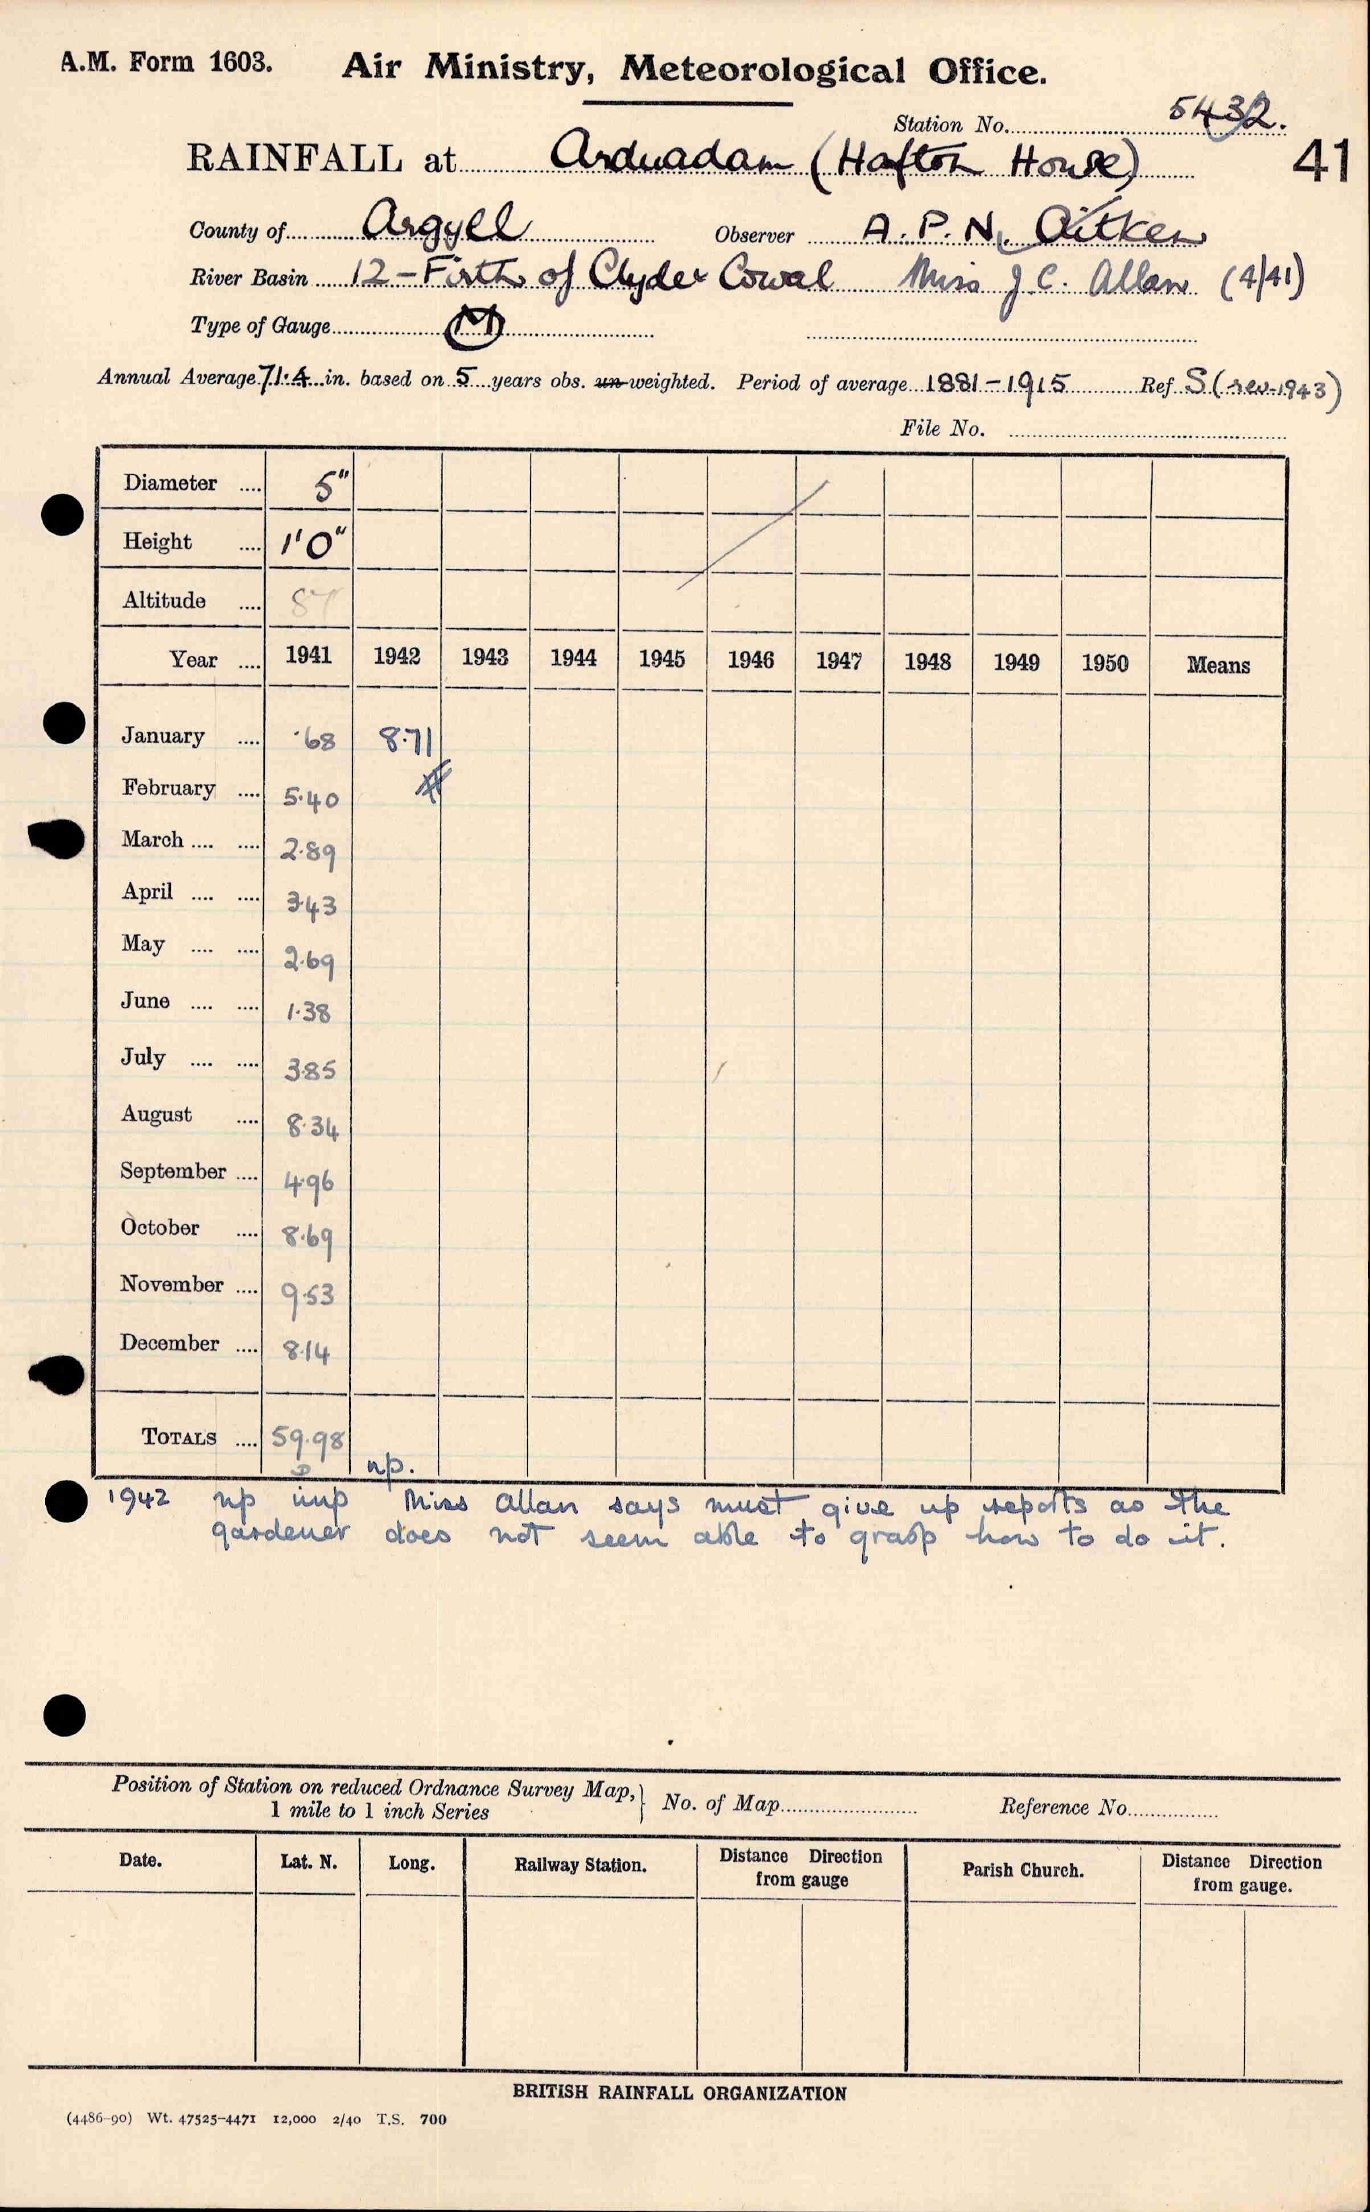 A.M. Form 1603. Air Ministry, Meteorological Office.
Station No. 5432.
RAINFALL at Arduadam (Hafton House) 41
County of Argyll Observer A. P. N. Aitken
River Basin 12 - Firth of Clyde & Cowal Miss J. C. Allan (4/41)
Type of Gauge M
Annual Average 71.4 in. based on 5 years obs. un-weighted. Period of average 1881-1915 Ref. S (rev. 1943)
File No.
Diameter .... 5"
Height .... 1'0"
Altitude .... 87
Year .... 1941 1942 1943 1944 1945 1946 1947 1948 1949 1950 Means
January .... .68 8.71
February .... 5.40
March .... .... 2.89
April .... .... 3.43
May .... .... 2.69
June .... .... 1.38
July .... .... 3.85
August .... 8.34
September .... 4.96
October .... 8.69
November .... 9.53
December .... 8.14
TOTALS .... 59.98 np.
1942 np imp Miss Allan says must give up reports as the
gardener does not seem able to grasp how to do it.
Position of Station on reduced Ordnance Survey Map, 1 mile to 1 inch Series No. of Map Reference No.
Date. Lat. N. Long. Railway Station. Distance Direction from gauge Parish Church. Distance Direction from gauge.
BRITISH RAINFALL ORGANIZATION
(4486-90) Wt. 47525-4471 12,000 2/40 T.S. 700